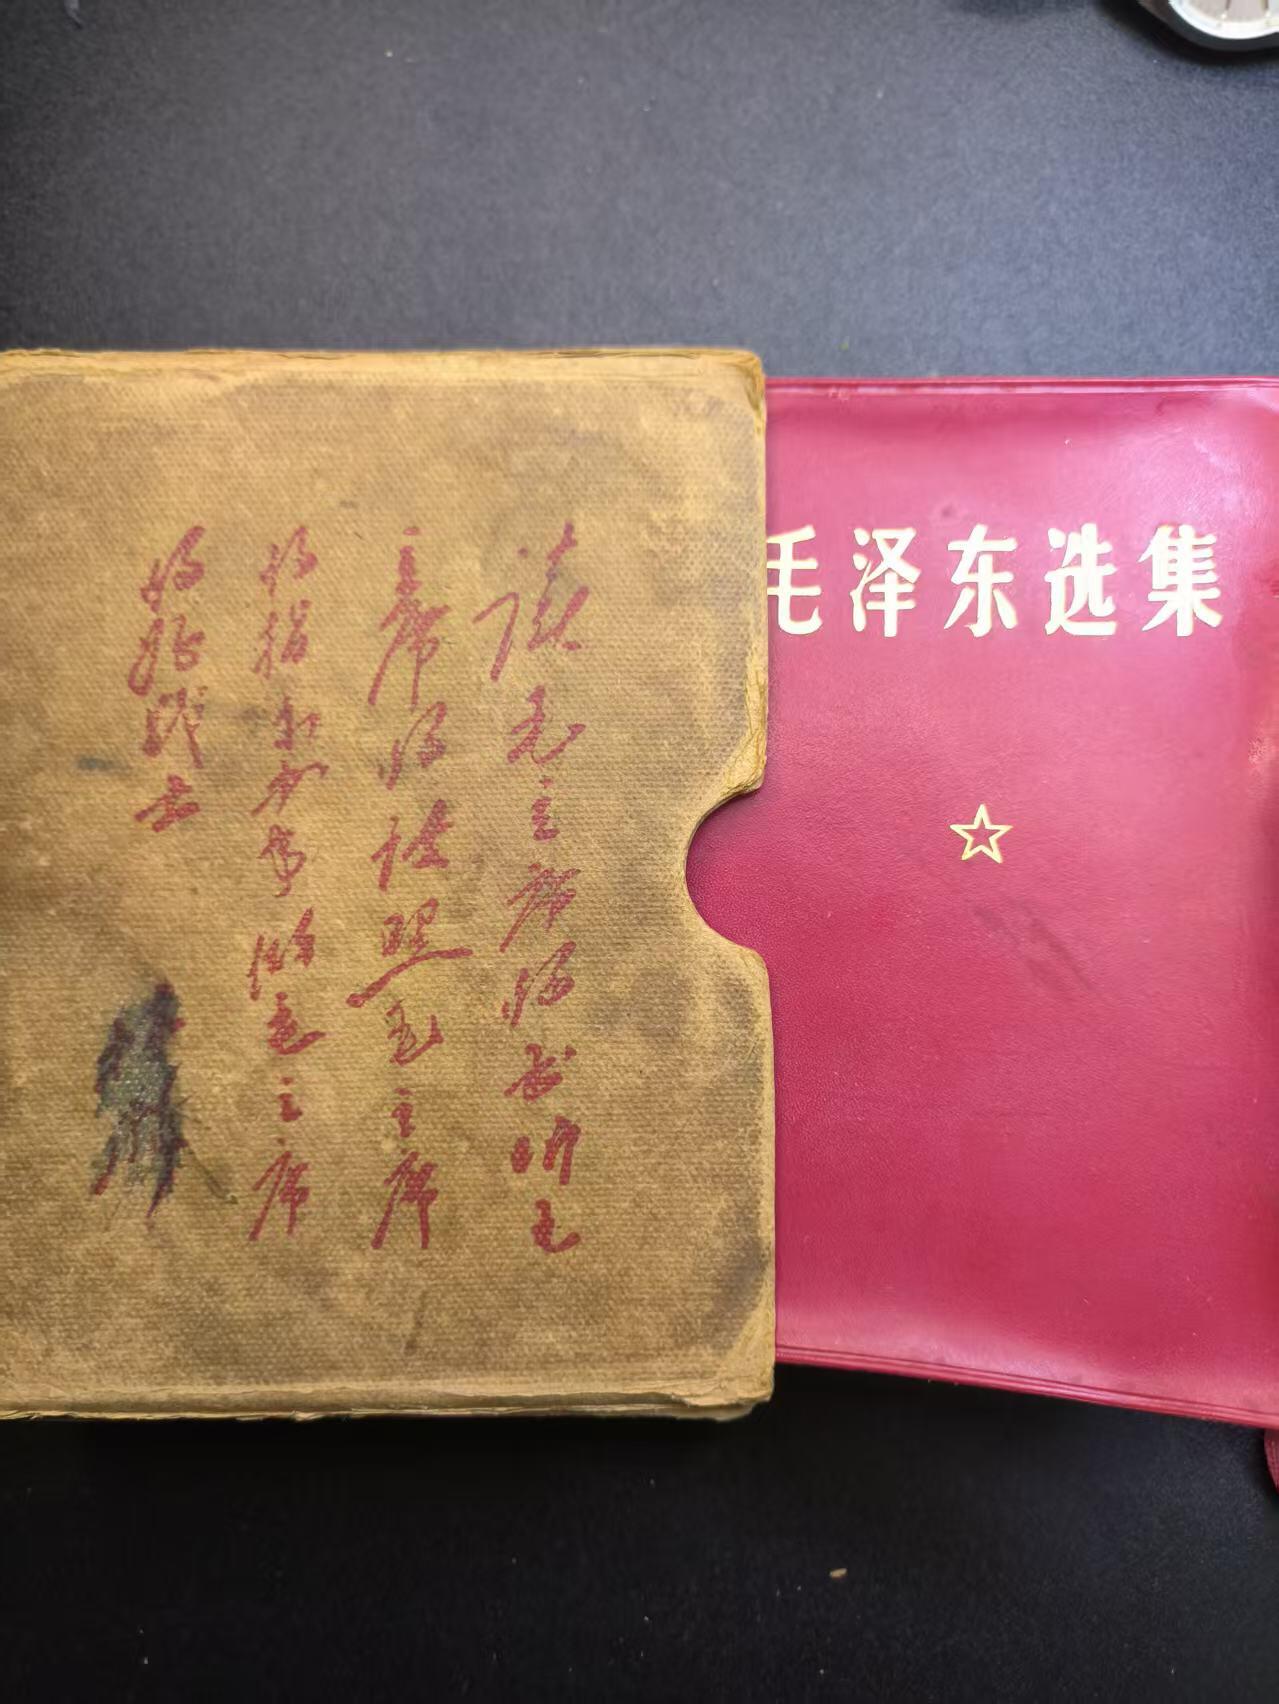 读毛主席的书听毛
主席的话照毛主席
的指示办事做毛主席
的好战士
毛泽东选集